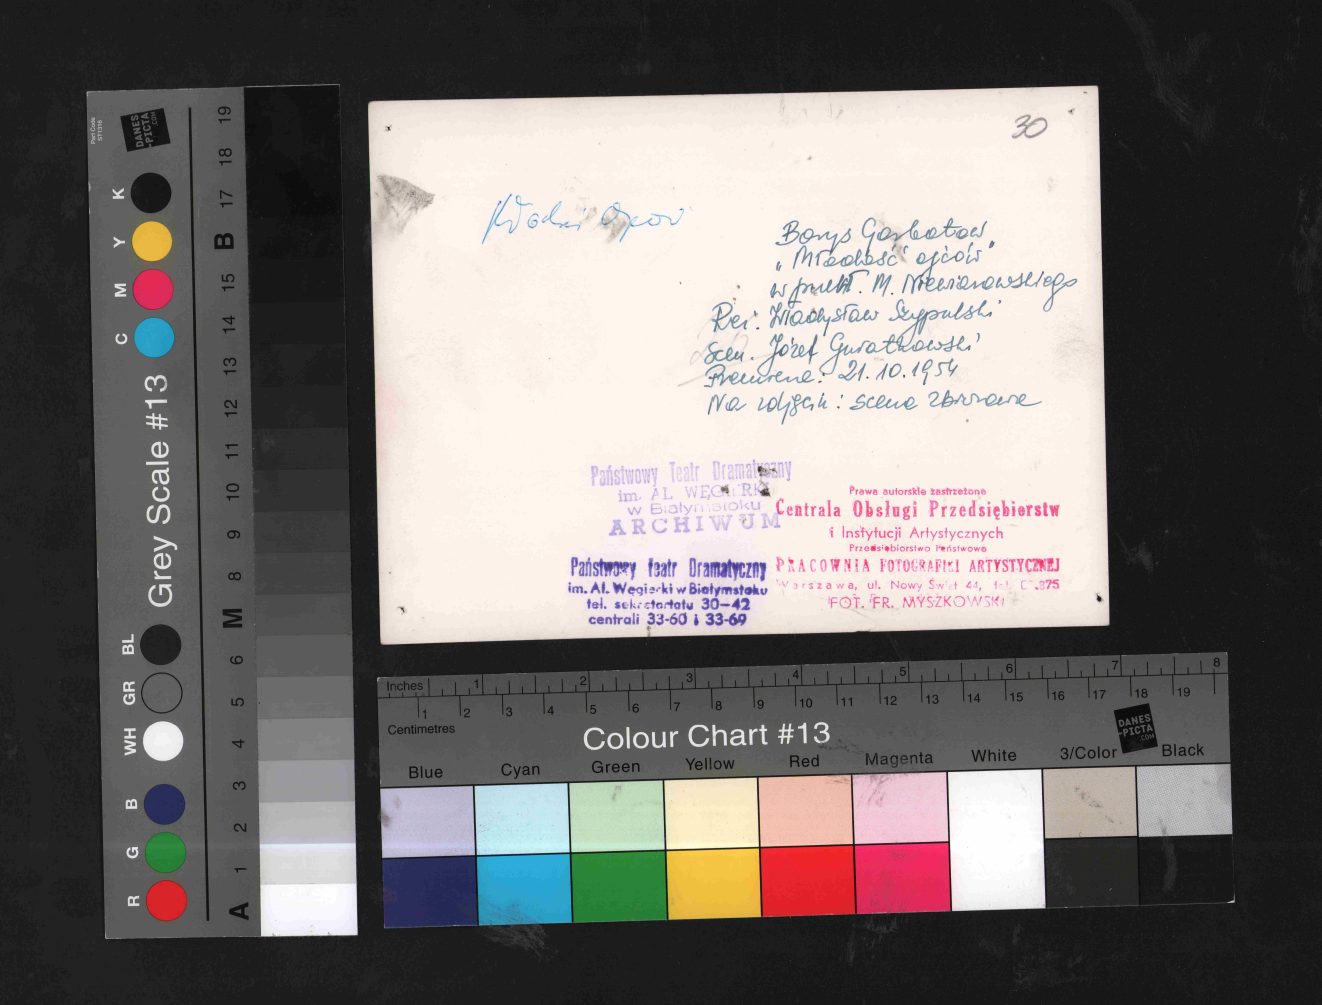 30
Borys Gorbatow
"Młodość ojców"
w przekł. M. Niewiarowskiego
Reż. Władysław Szypulski
Scen. Józef Guratkowski
Premiera: 21.10.1954
Na zdjęciu: scena zbiorowa
Państwowy Teatr Dramatyczny
im. AL. WĘGIERKI
w Białymstoku
ARCHIWUM
Państwowy Teatr Dramatyczny
im. Al. Węgierki w Białymstoku
tel. sekretariatu 30-42
centrali 33-60 i 33-69
Prawa autorskie zastrzeżone
Centrala Obsługi Przedsiębiorstw
i Instytucji Artystycznych
Przedsiębiorstwo Państwowe
PRACOWNIA FOTOGRAFIKI ARTYSTYCZNEJ
Warszawa, ul. Nowy Świat 44, tel.
FOT. FR. MYSZKOWSKI
Part Code
ST1316
DANES
-PICTA
.COM
K Y M C
Grey Scale #13
BL GR WH
B G R
A 1 2 3 4 5 6 M 8 9 10 11 12 13 14 15 B 17 18 19
Inches 1 2 3 4 5 6 7 8
Centimetres 1 2 3 4 5 6 7 8 9 10 11 12 13 14 15 16 17 18 19
Colour Chart #13
DANES
-PICTA
.COM
Blue Cyan Green Yellow Red Magenta White 3/Color Black